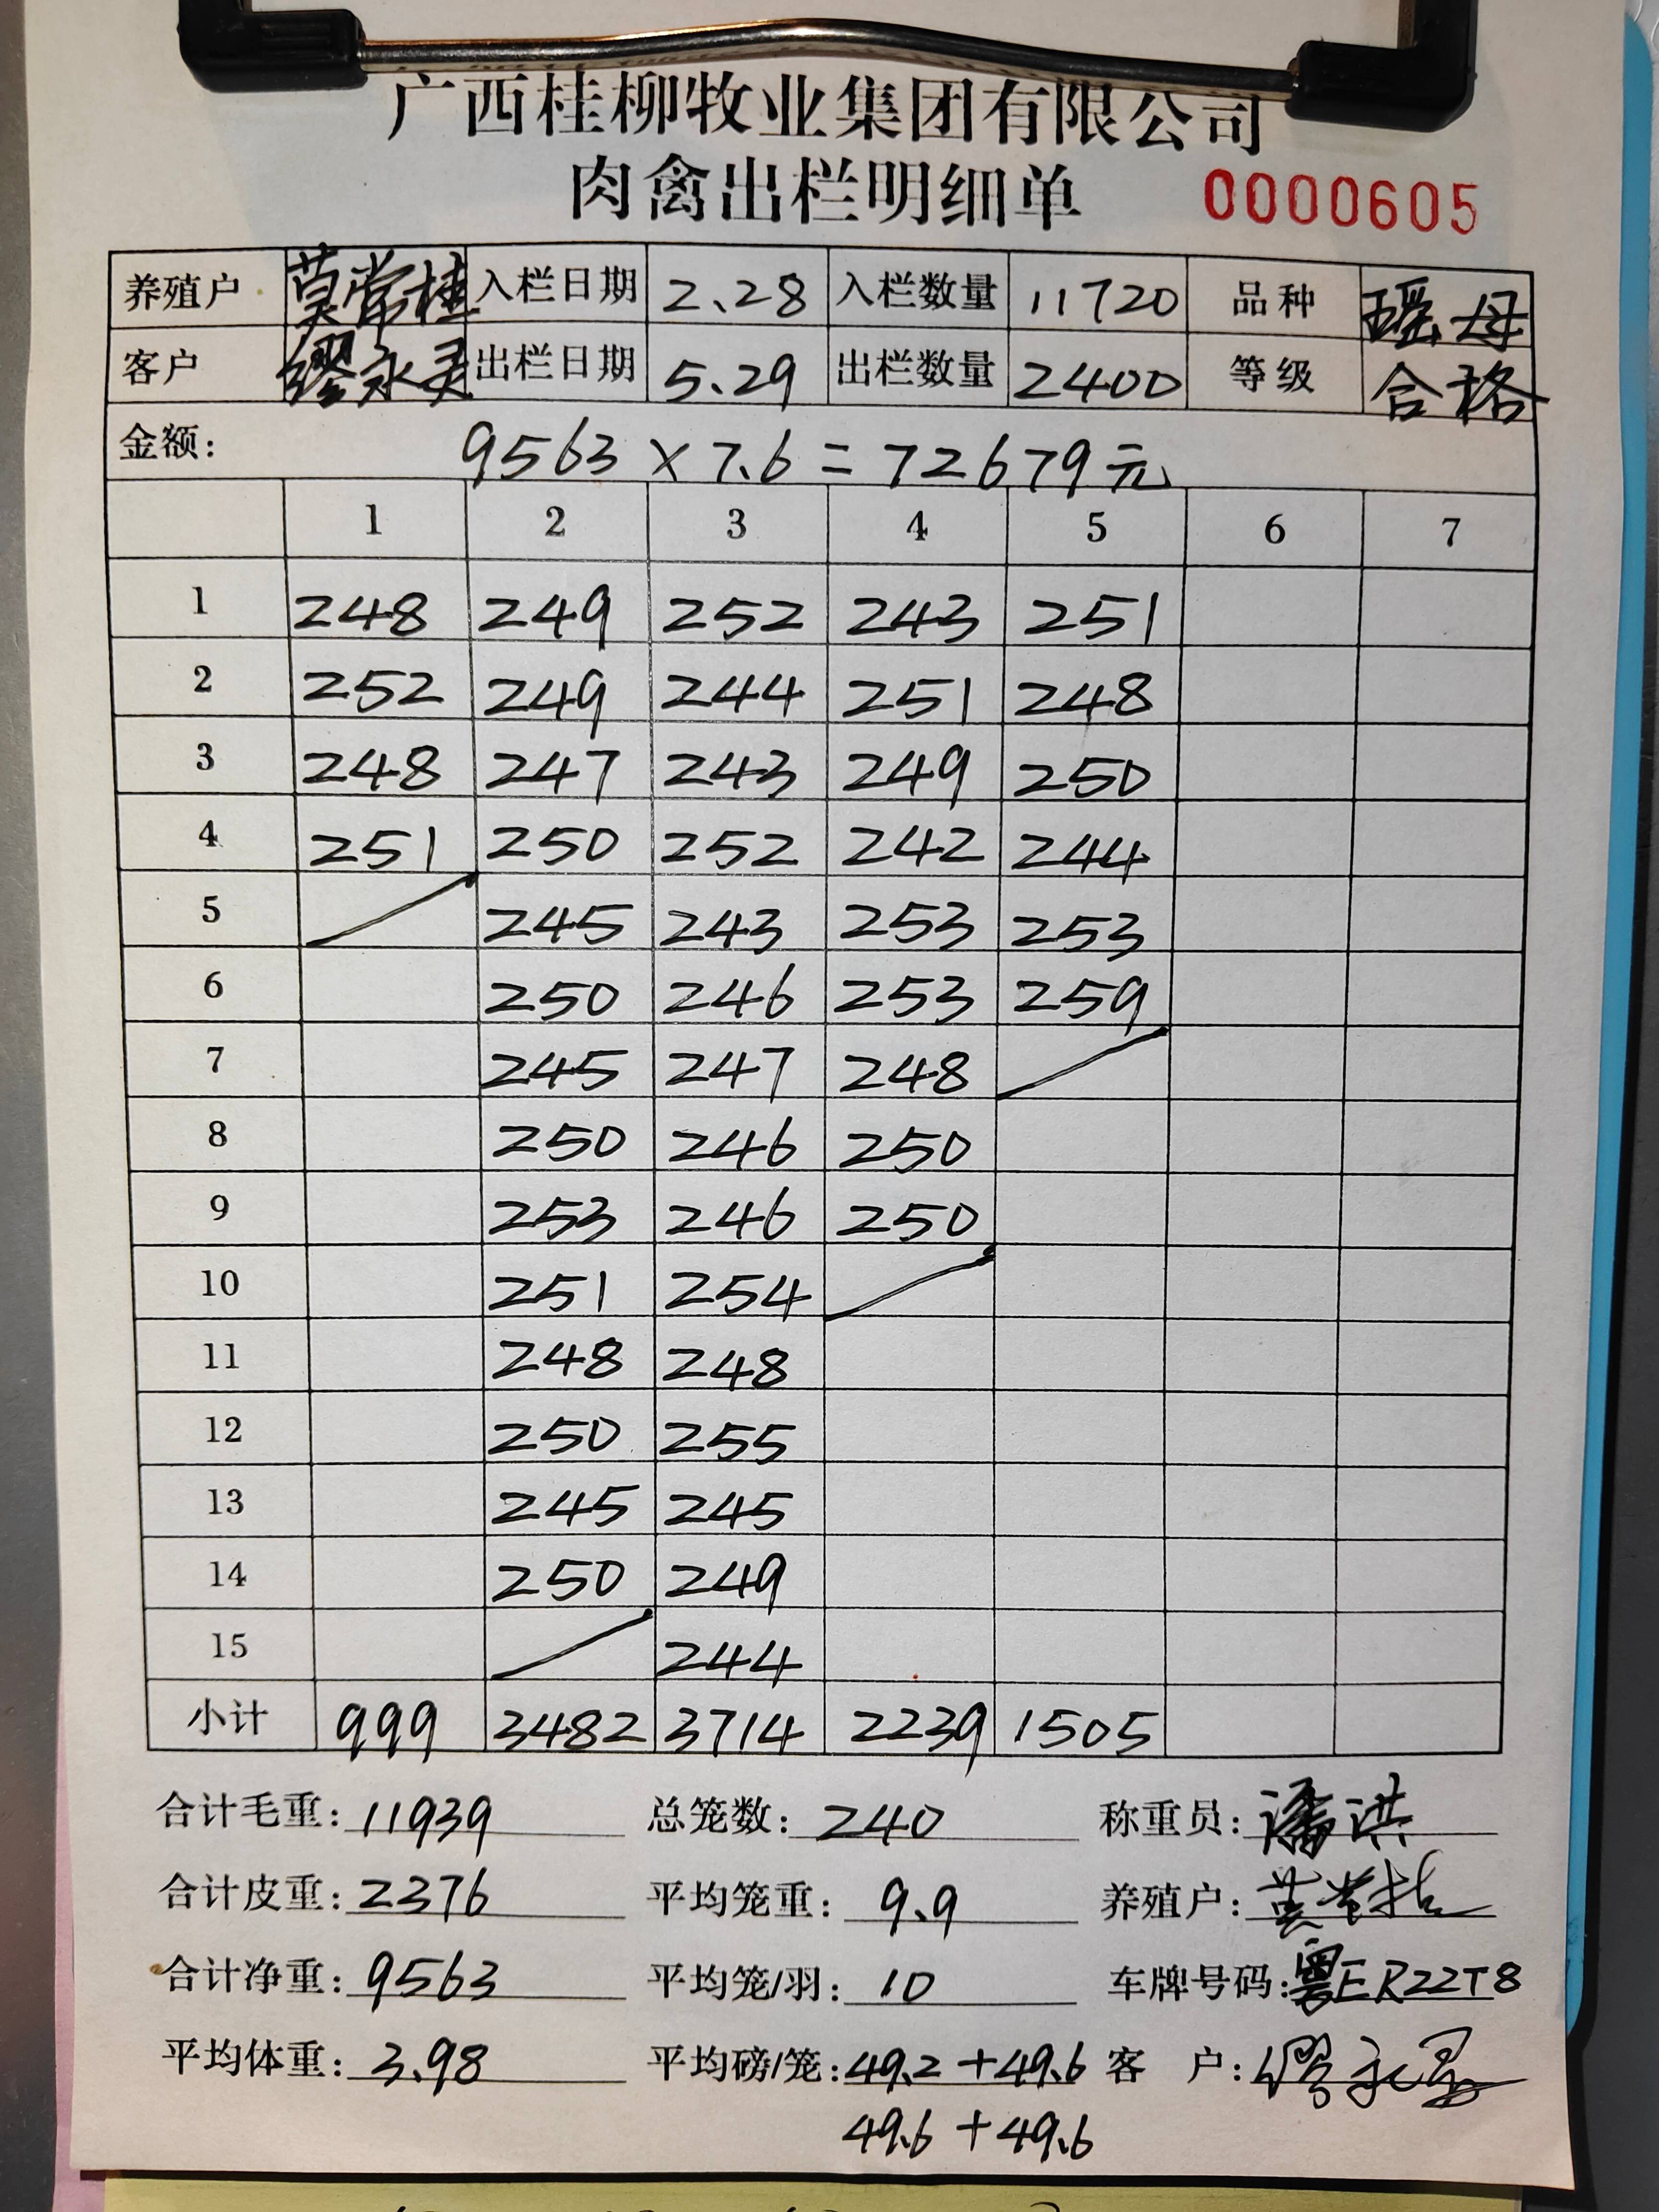 广西桂柳牧业集团有限公司
肉禽出栏明细单 0000605
养殖户 莫常桂 入栏日期 2.28 入栏数量 11720 品种 瑶母
客户 缪永灵 出栏日期 5.29 出栏数量 2400 等级 合格
金额: 9563×7.6=72679元
1 2 3 4 5 6 7
1 248 249 252 243 251
2 252 249 244 251 248
3 248 247 243 249 250
4 251 250 252 242 244
5 245 243 253 253
6 250 246 253 259
7 245 247 248
8 250 246 250
9 253 246 250
10 251 254
11 248 248
12 250 255
13 245 245
14 250 249
15 244
小计 999 3482 3714 2239 1505
合计毛重: 11939 总笼数: 240 称重员: 潘洪
合计皮重: 2376 平均笼重: 9.9 养殖户:
合计净重: 9563 平均笼/羽: 10 车牌号码: 粤ER22T8
平均体重: 3.98 平均磅/笼: 49.2+49.6 客 户: 缪永灵
49.6+49.6